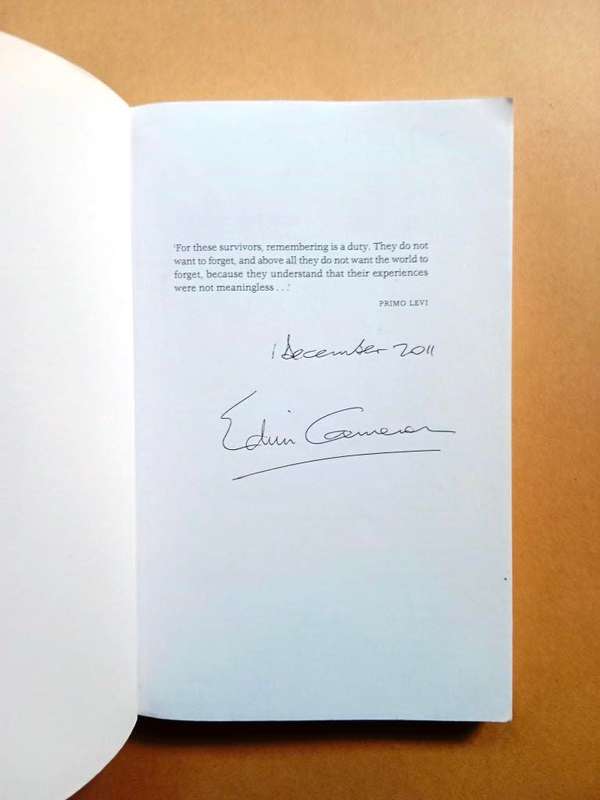 'For these survivors, remembering is a duty. They do not
want to forget, and above all they do not want the world to
forget, because they understand that their experiences
were not meaningless . . .'
PRIMO LEVI
1 December 2011
Edwin Cameron